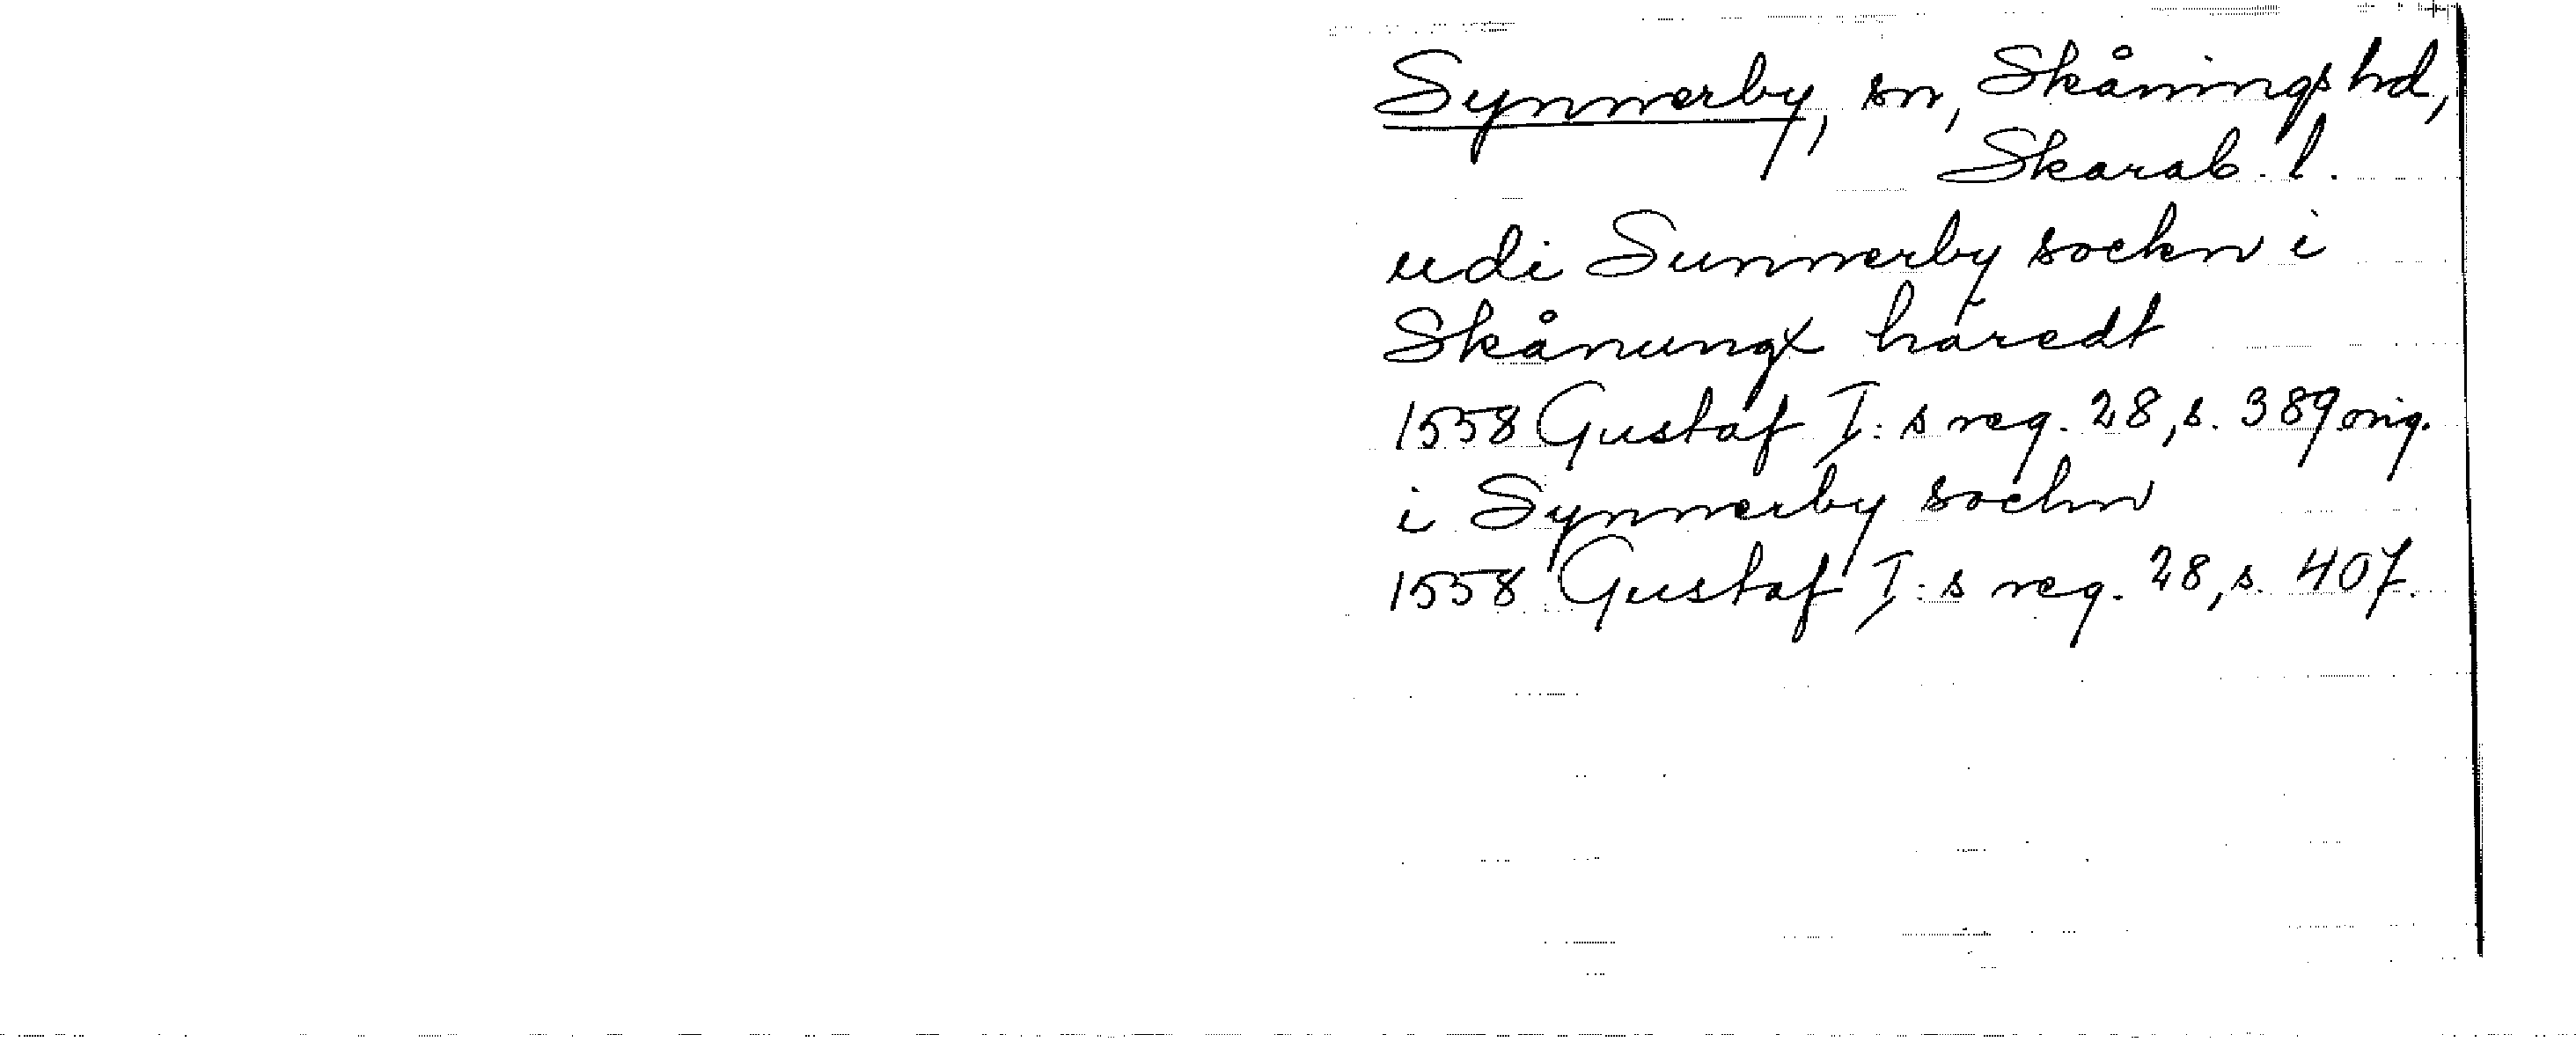 Synnerby, sn, Skånings hd,
Skarab. l.
udi Sunnerby sockn i
Skånungx häredt
1558 Gustaf I:s reg. 28, s. 389 orig.
i Synnerby sochn
1558 Gustaf I:s reg. 28, s. 407.